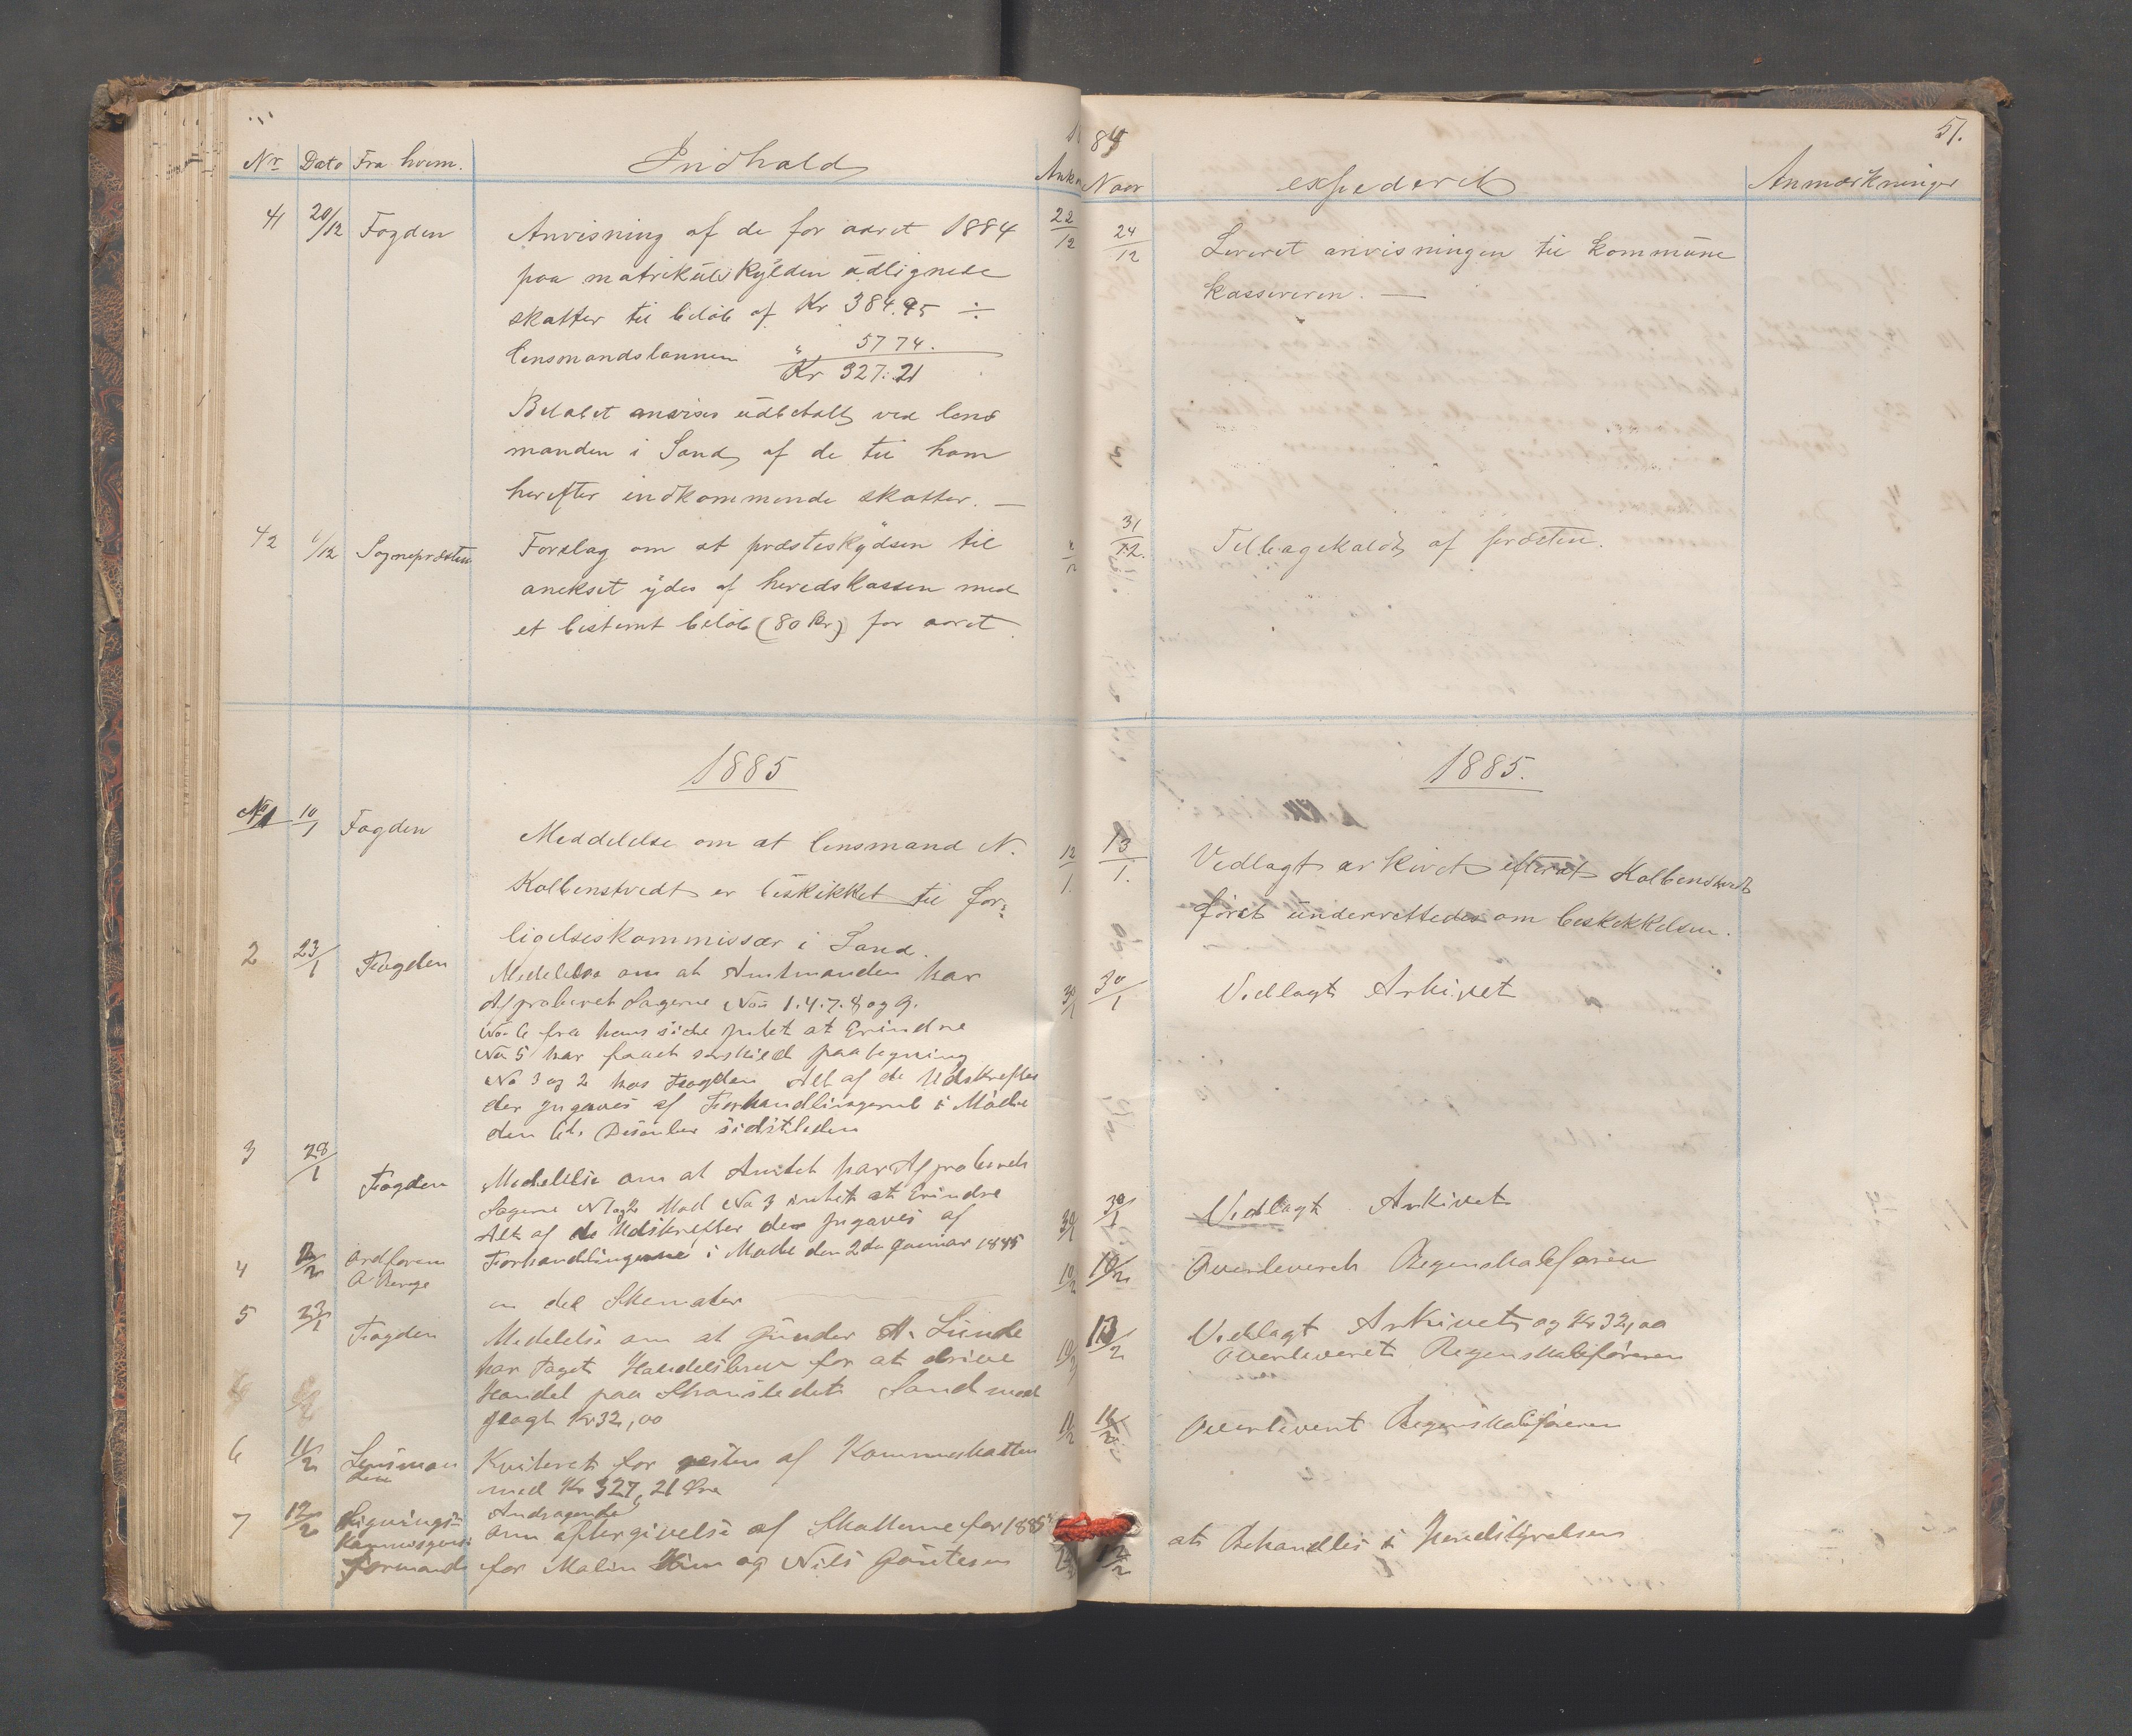 Nr Dato Fra hvem. Indhold Ank
41 20/12 Fogden Anvisning af de for aaret 1884 22/12
paa matrikülskylden üdlignede
skatter til beløb af Kr 384.95 ÷
lensmandslønnen " 57 74.
Kr 327:21
Beløbet anvises üdbetalt ved lens
manden i Sand af de til ham
herefter indkommende skatter. —
42 1/12 Sognepræsten Forslag om at præsteskydsen til
anekset ydes af heredskassen med
et bestemt beløb (80 kr) for aaret.
1885
No 1 10/1 Fogden Meddelelse om at lensmand N. 12/1.
Kolbenstvedt er beskikket til for=
ligelseskommissær i Sand.
2 23/1 Fogden Medelelse om at Amtmanden har 30/1
Approberet Sagerne No 1.4.7.8 og 9.
No 6 fra hans side intet at Erindre
No 5 har faaet særskild paategning
No 3 og 2 hos Fogden Alt af de Udskrefter
der ingaves af Forhandlingerne i Møde
den 6te Desember sidstleden
3 28/1 Fogden Medelelse om at Amtet har Approberet
Sagerne N 1 og 2 Mod No 3 intet at Erindre 30/1
Alt af de Udskrefter der ingaves af
Forhandlingerne i Møde den 2den Januar 1885
4 Ordføren
A Berge 10/2
en del Skemater
5 23/1 Fogden Medelelse om at Günder A. Lünde
har Taget Handelsbrev for at drive 10/2
Handel paa Strandstedet Sand mod
Afgagt Kr 32,00
6 11/2 Lensman
den Kviteret for resten af Kommeskatten 11/2
med Kr 327,21 Øre
7 12/2 Ligningss= Andragende
Kommisjons: om eftergivelse af Skatterne for 1885
formand for Malin og Nils Gøutesen
1884 51.
Naar expederet Anmærkninger
24/12 Leveret anvisningen til kommüne
kassereren. —
31/12. Tilbagekaldt af præsten.
1885.
13/1. Vedlagt arkivet efterat Kolbenstvedt
først ünderrettedes om beskikkelsen.
30/1 Vedlagt Arkivet
30/1 Vedlagt Arkivet
10/2 Overleveret Regenskabsføren
13/2 Vedlagt Arkivet og Kr 32,00
Overleveret Regenskabsføreren
11/2 Overleveret Regenskabsføreren
12/2 at Behandles i Heredstyrelsen